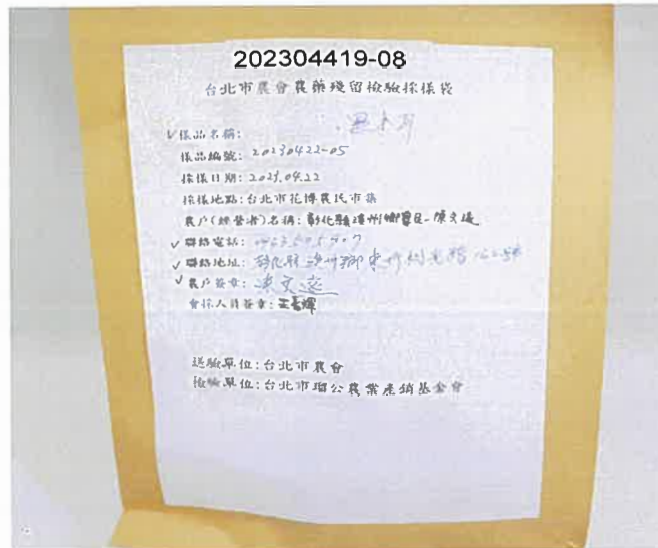 202304419-08
台北市農會農藥殘留檢驗採樣袋
✓樣品名稱: 黑木耳
樣品編號: 20230422-05
採樣日期: 2023.04.22
採樣地點:台北市花博農民市集
農戶(經營者)名稱:彰化縣溪州鄉農民-陳文遠
✓聯絡電話:
✓聯絡地址: 彰化縣溪州鄉
✓農戶簽章: 陳文遠
會採人員簽章:
送驗單位:台北市農會
檢驗單位:台北市瑠公農業產銷基金會